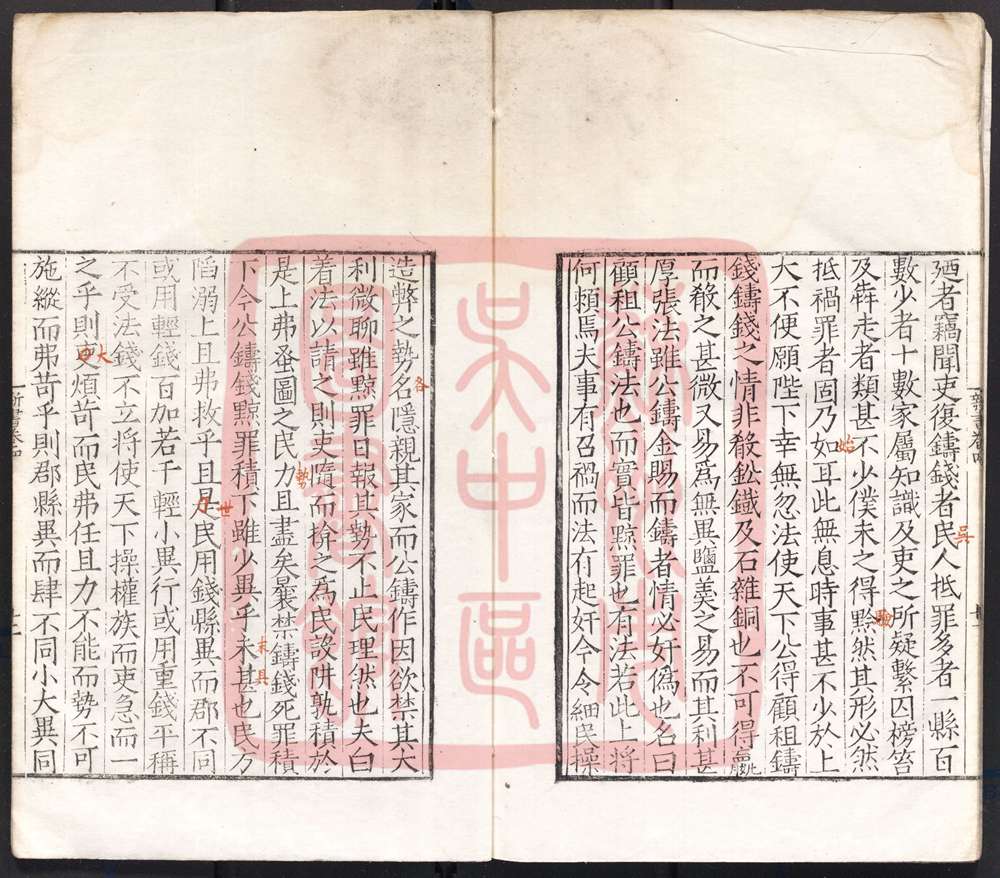 廼者竊聞吏復鑄錢者民人抵罪多者一縣百
數少者十數家屬知識及吏之所疑繫囚榜笞
及犇走者類甚不少僕未之得黥然其形必然
抵禍罪者固乃如耳此無息時事甚不少於上
大不便願陛下幸無忽法使天下公得顧租鑄
錢鑄錢之情非殽鈆鐵及石雜銅也不可得贏
而殽之甚微又易爲無異鹽羙之易而其利甚
厚張法雖公鑄金賜而鑄者情必奸僞也名曰
顧租公鑄法也而實皆黥罪也有法若此上將
何頼焉夫事有召禍而法有起奸今令細民操
造弊之勢名隱親其家而公鑄作因欲禁其大
利微聊雖黥罪日報其勢不止民理然也夫白
着法以請之則吏隨而揜之爲民設阱孰積於
是上弗蚤圖之民力且盡矣曩禁鑄錢死罪積
下今公鑄錢黥罪積下雖少異乎未甚也民方
陷溺上且弗救乎且是民用錢縣異而郡不同
或用輕錢百加若干輕小異行或用重錢平稱
不受法錢不立將使天下操權族而吏急而一
之乎則吏煩苛而民弗任且力不能而勢不可
施縱而弗苛乎則郡縣異而肆不同小大異同
新書卷四
吳
驗
始
各
勢
未具
世
大
蘇州市
吳中區
圖書館